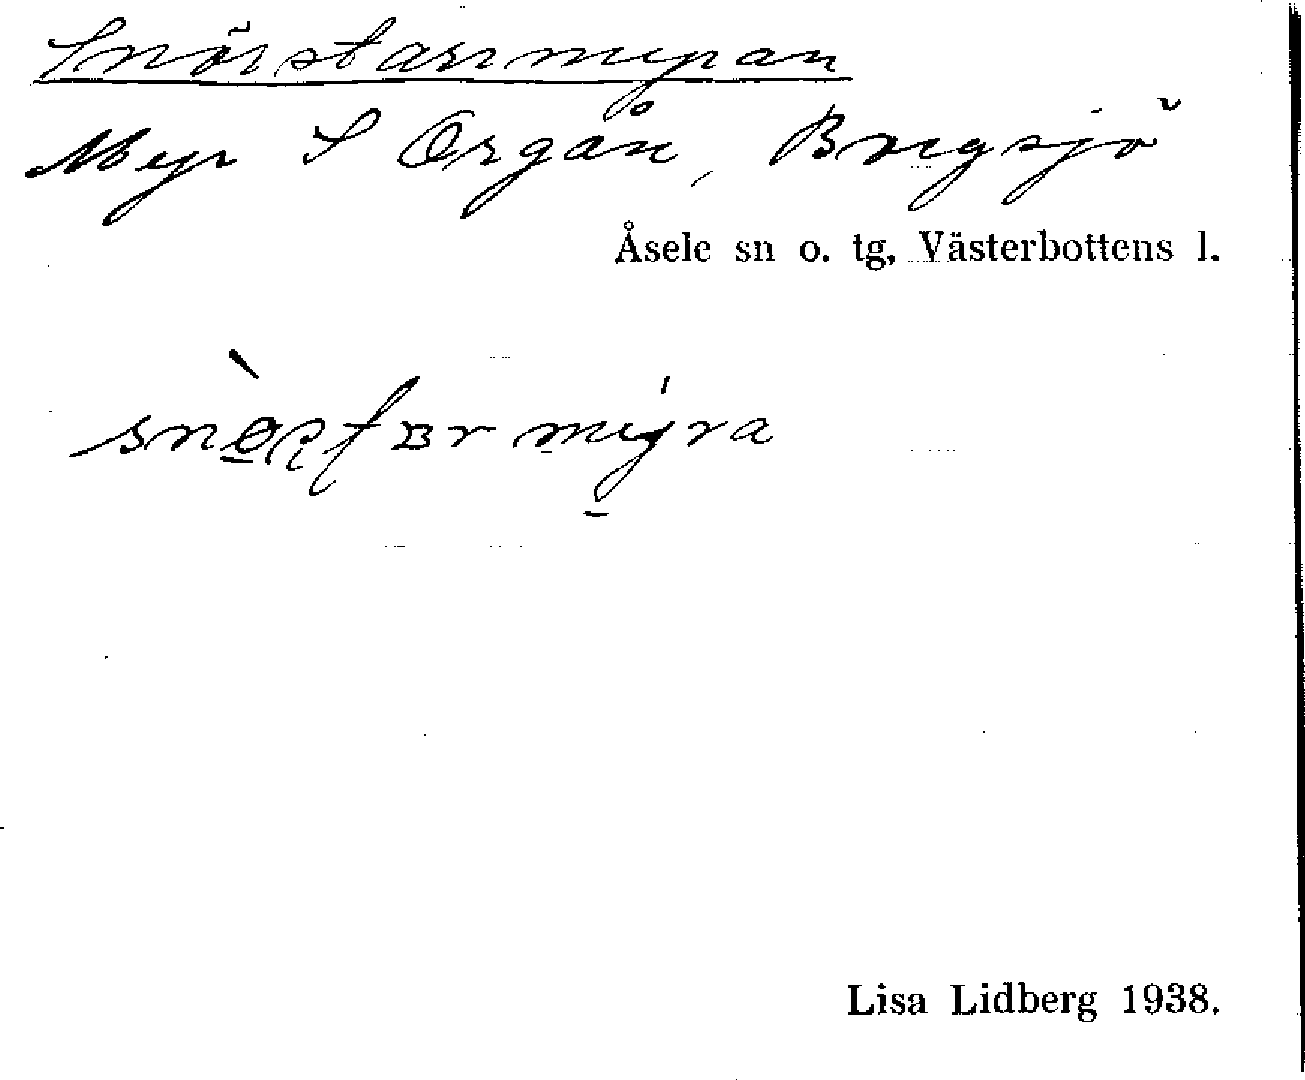 Snörstarrmyran
Myr S Orgån, Borgsjö
Åsele sn o. tg, Västerbottens l.
Lisa Lidberg 1938.